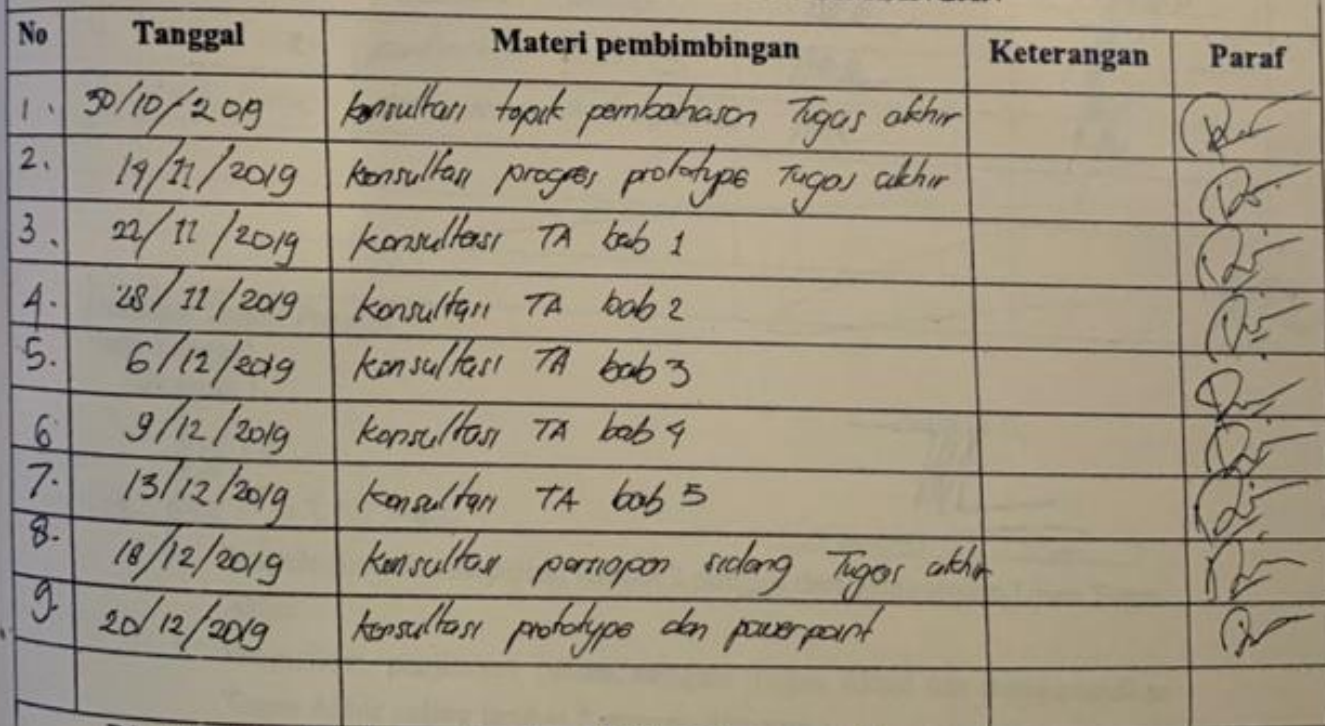 No Tanggal Materi pembimbingan Keterangan Paraf
1. 30/10/2019 konsultasi topik pembahasan Tugas akhir
2. 19/11/2019 konsultasi progres prototype Tugas akhir
3. 22/11/2019 konsultasi TA bab 1
4. 28/11/2019 konsultasi TA bab 2
5. 6/12/2019 konsultasi TA bab 3
6 9/12/2019 konsultasi TA bab 4
7. 13/12/2019 konsultasi TA bab 5
8. 18/12/2019 konsultasi persiapan sidang Tugas akhir
9. 20/12/2019 konsultasi prototype dan powerpoint